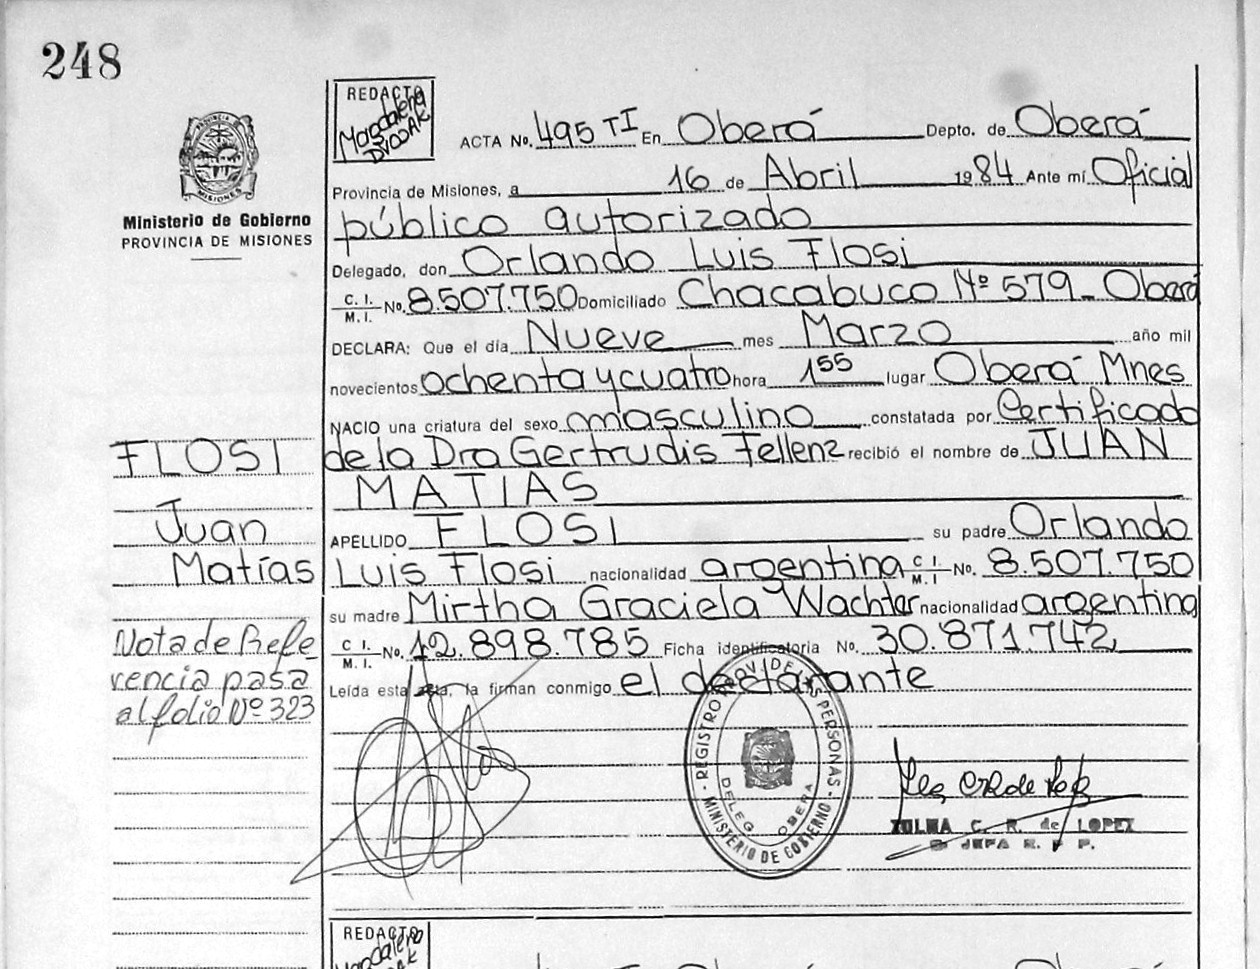 248
REDACTO
Magdalena
DVODAK
ACTA No. 495 TI En Oberá Depto. de Oberá
Provincia de Misiones, a 16 de Abril 1984 Ante mí Oficial
público autorizado
Delegado, don Orlando Luis Flosi
C. I. M. I. No. 8.507.750 Domiciliado Chacabuco Nº 579 - Oberá
DECLARA: Que el día Nueve mes Marzo año mil
novecientos ochenta y cuatro hora 1 55 lugar Oberá Mnes
NACIO una criatura del sexo masculino constatada por Certificado
de la Dra Gertrudis Fellenz recibió el nombre de JUAN
MATIAS
APELLIDO FLOSI su padre Orlando
Luis Flosi nacionalidad argentina C. I. M. I No. 8.507.750
su madre Mirtha Graciela Wachter nacionalidad argentina
C. I. M. I. No. 12.898.785 Ficha identificatoria No. 30.871.742
Leída esta acta, la firman conmigo el declarante
PROVINCIA DE MISIONES
Ministerio de Gobierno
PROVINCIA DE MISIONES
FLOSI
Juan
Matías
Nota de Refe
rencia pasa
al folio Nº 323
REGISTRO PROV. DE LAS PERSONAS
MINISTERIO DE GOBIERNO
DELEG. OBERA
ZULMA C. R. de LOPEZ
JEFA R. P. P.
REDACTO
Magdalena